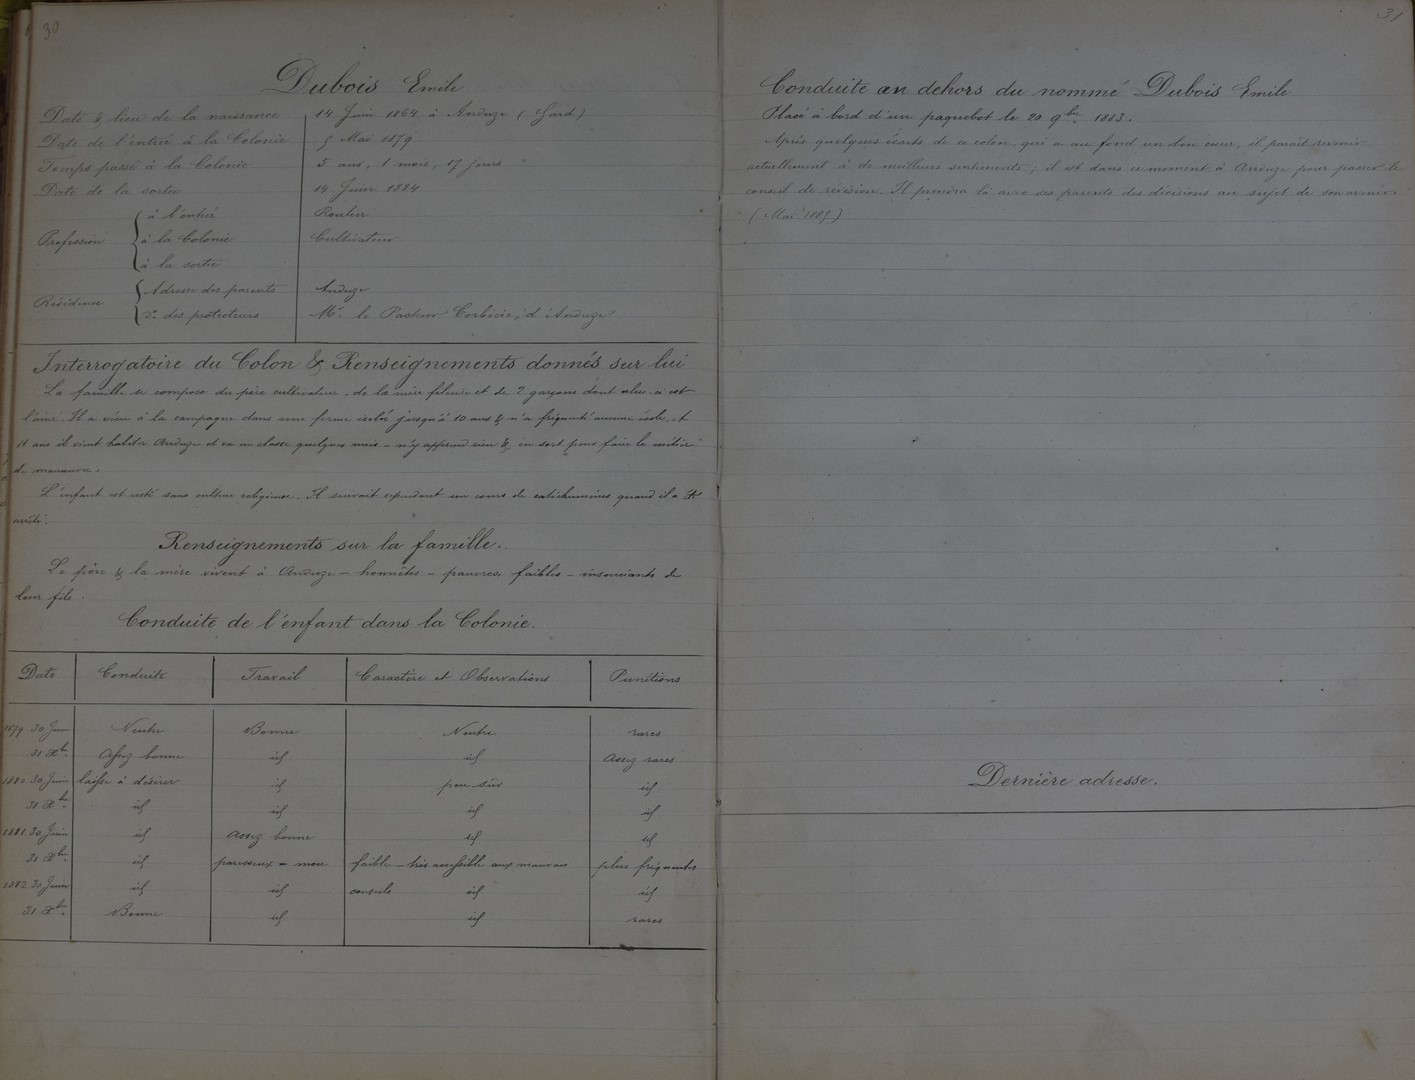 30
Dubois Emile
Date & lieu de la naissance 14 Juin 1864 à Anduze (Gard)
Date de l'entrée à la Colonie 5 Mai 1879
Temps passé à la Colonie 5 ans, 1 mois, 17 jours
Date de la sortie 14 Juin 1884
Profession à l'entrée Rouleur
à la Colonie Cultivateur
à la sortie
Résidence Adresse des parents Anduze
do. des protecteurs Mr. le Pasteur d'Anduze
Interrogatoire du Colon & Renseignements donnés sur lui
La famille se compose du père cultivateur, de la mère fileuse et de 2 garçons dont celui-ci est
l'aîné. Il a vécu à la campagne dans une ferme isolée jusqu'à 10 ans & n'a fréquenté aucune école. A
11 ans il vint habiter Anduze et va en classe quelques mois - n'y apprend rien & en sort pour faire le métier
de manœuvre.
L'enfant est resté sans culture religieuse. Il suivait cependant un cours de catéchumènes quand il a été
arrêté.
Renseignements sur la famille.
Le père & la mère vivent à Anduze - honnêtes - pauvres, faibles - insouciants de
leur fils.
Conduite de l'enfant dans la Colonie.
Date Conduite Travail Caractère et Observations Punitions
1879 30 Juin Neutre Bonne Neutre rares
31 Xbre Assez bonne id id Assez rares
1880 30 Juin laisse à désirer id peu sûr id
31 Xbre id id id id
1881 30 Juin id Assez bonne id id
31 Xbre id paresseux - mou faible - très accessible aux mauvais plus fréquentes
1882 30 Juin id id conseils id id
31 Xbre Bonne id id rares
31
Conduite au dehors du nommé Dubois Emile
Placé à bord d'un paquebot le 20 9bre 1883.
Après quelques écarts de ce colon, qui a au fond un bon cœur, il paraît revenir
actuellement à de meilleurs sentiments; il est dans ce moment à Anduze pour passer le
conseil de révision. Il prendra là avec ses parents des décisions au sujet de son avenir
(Mai 1885)
Dernière adresse.